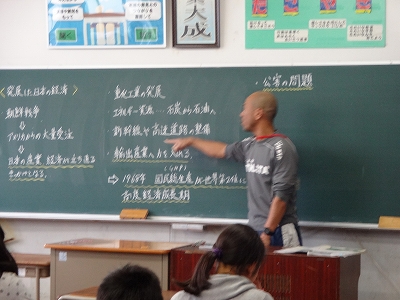 〈発展した日本の経済〉
朝鮮戦争
⇩
アメリカからの大量受注
⇩
日本の産業 経済が立ち直る
きっかけとなる。
・重化学工業の発展
・エネルギー資源…石炭から石油へ
・新幹線や高速道路の整備
・輸出産業へ力を入れる。
(GNP)
⇨ 1968年 国民総生産が世界第2位に
高度経済成長期
・公害の問題
大成